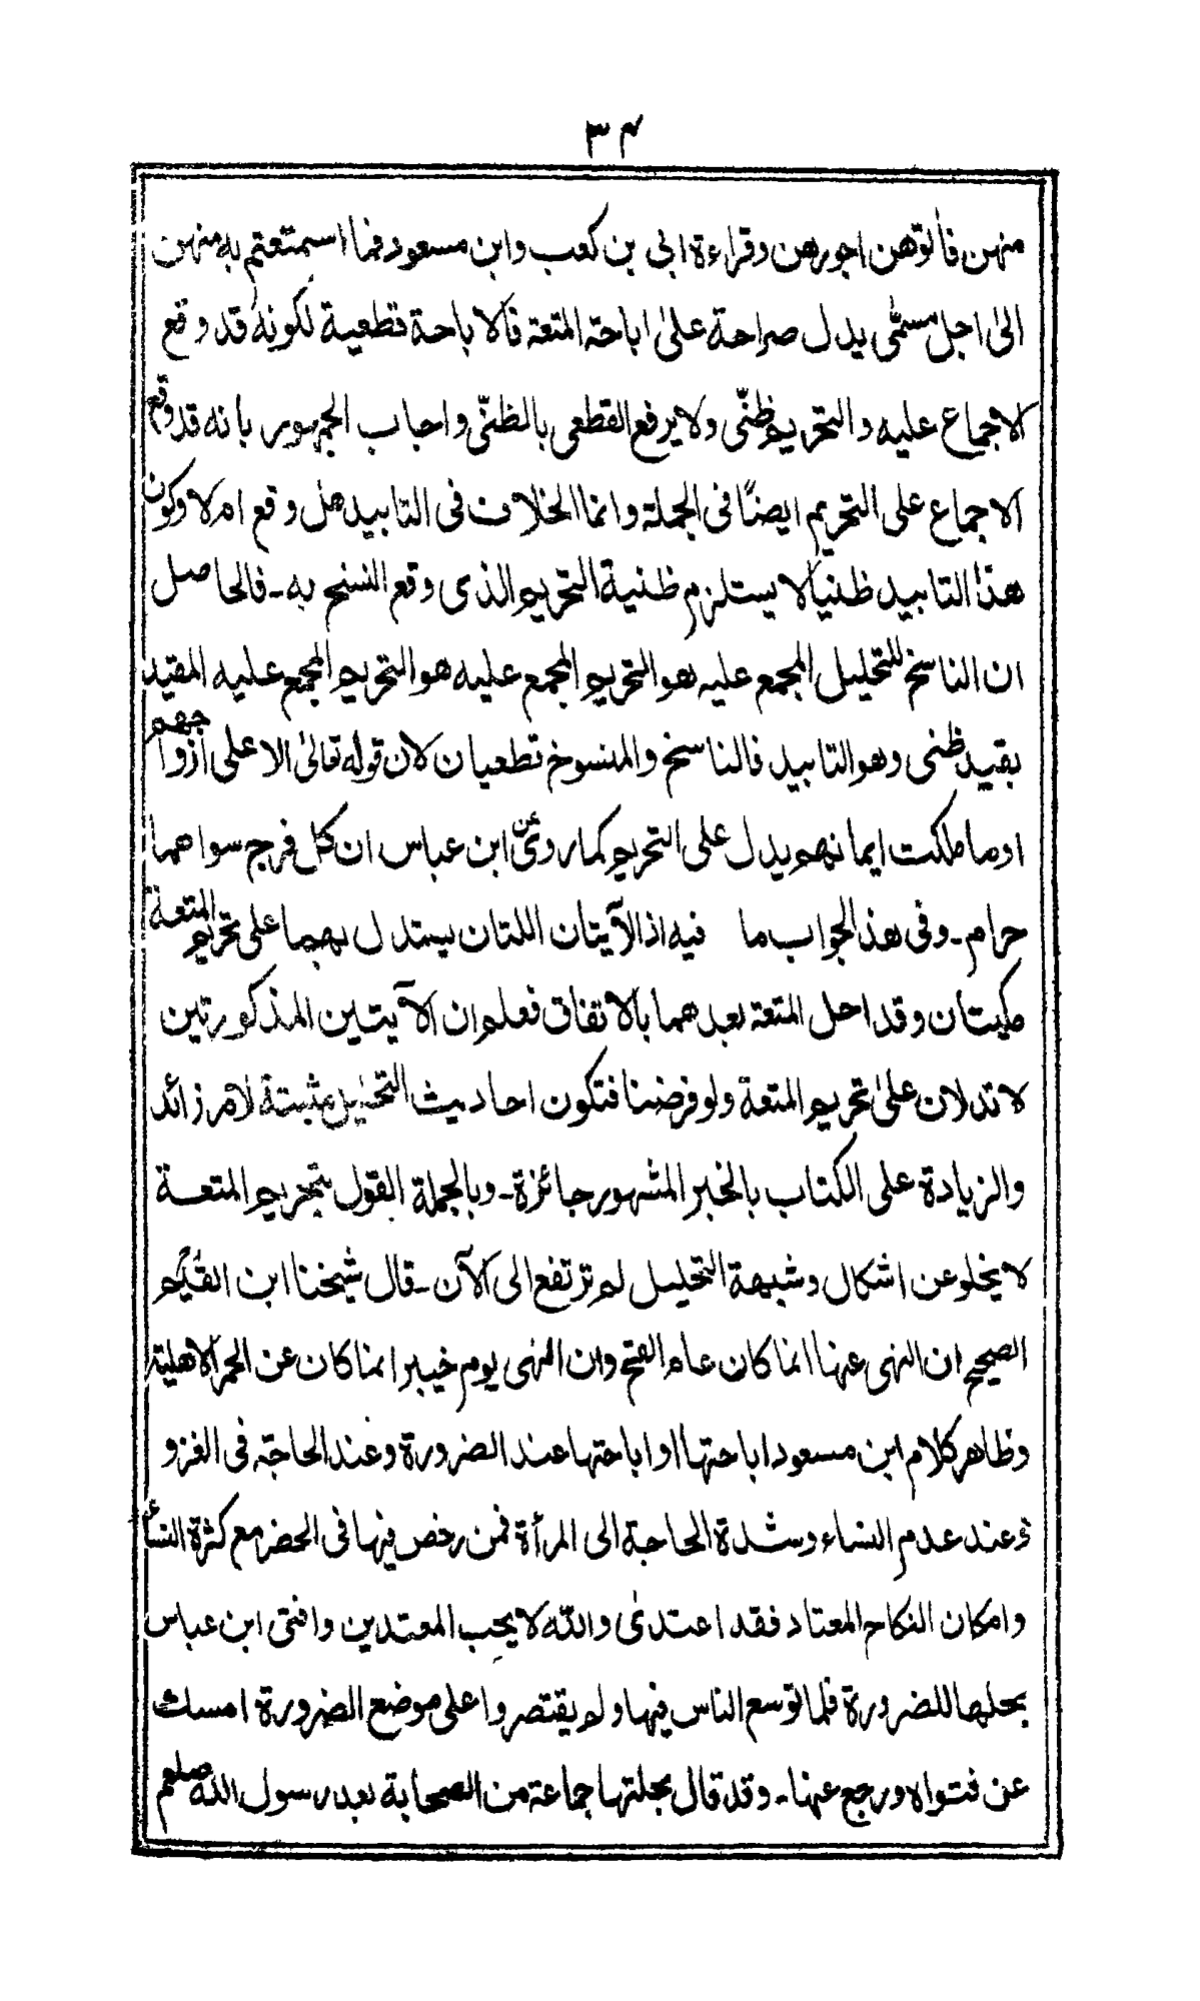 ٣٤
منهن فأتوهن اجورهن وقراءة ابى بن كعب وابن مسعود فما استمتعتم به منهن
الى اجل مسمّى يدل صراحة على اباحة المتعة فالاباحة قطعية لكونه قد وقع
الاجماع عليه والتحريم ظنّى ولا يرفع القطعى بالظنّى واجاب الجمهور بانه قد وقع
الاجماع على التحريم ايضًا فى الجملة وانما الخلاف فى التابيد هل وقع ام لا وكون
هذا التابيد ظنيًا لا يستلزم ظنية التحريم الذى وقع النسخ به ـ فالحاصل
ان الناسخ للتحليل المجمع عليه هو التحريم المجمع عليه هو التحريم المجمع عليه المقيد
بقيد ظنى وهو التابيد فالناسخ والمنسوخ قطعيان لان قوله تعالىٰ الا على ازواجهم
او ما ملكت ايمانهم يدل على التحريم كما روى عن ابن عباس ان كل فرج سواهما
حرام ـ وفى هذ الجواب ما فيه اذ الآيتان اللتان يستدل بهما على تحريم المتعة
مكيتان وقد احل المتعة بعدهما بالاتفاق فعلم ان الآيتين المذكورتين
لا تدلان على تحريم المتعة ولو فرضنا فتكون احاديث التحليل مثبتة لامر زائد
والزيادة على الكتاب بالخبر المشهور جائزة ـ وبالجملة القول بتحريم المتعة
لا يخلو عن اشكال وشبهة التحليل لم ترتفع الى الآن ـ قال شيخنا ابن القيّم
الصحيح ان النهى عنها انما كان عام الفتح وان النهى يوم خيبر انما كان عن الحمر الاهلية
وظاهر كلام ابن مسعود اباحتها او اباحتها عند الضرورة وعند الحاجة فى الغزو
وعند عدم النساء وشدة الحاجة الى المرأة فمن رخص فيها فى الحضر مع كثرة النسأ
وامكان النكاح المعتاد فقد اعتدىٰ والله لا يحب المعتدين وافتى ابن عباس
بحلها للضرورة فلما توسع الناس فيها ولم يقتصروا على موضع الضرورة امسك
عن فتواه ورجع عنها ـ وقد قال بحلتها جماعة من الصحابة بعد رسول الله صلعم